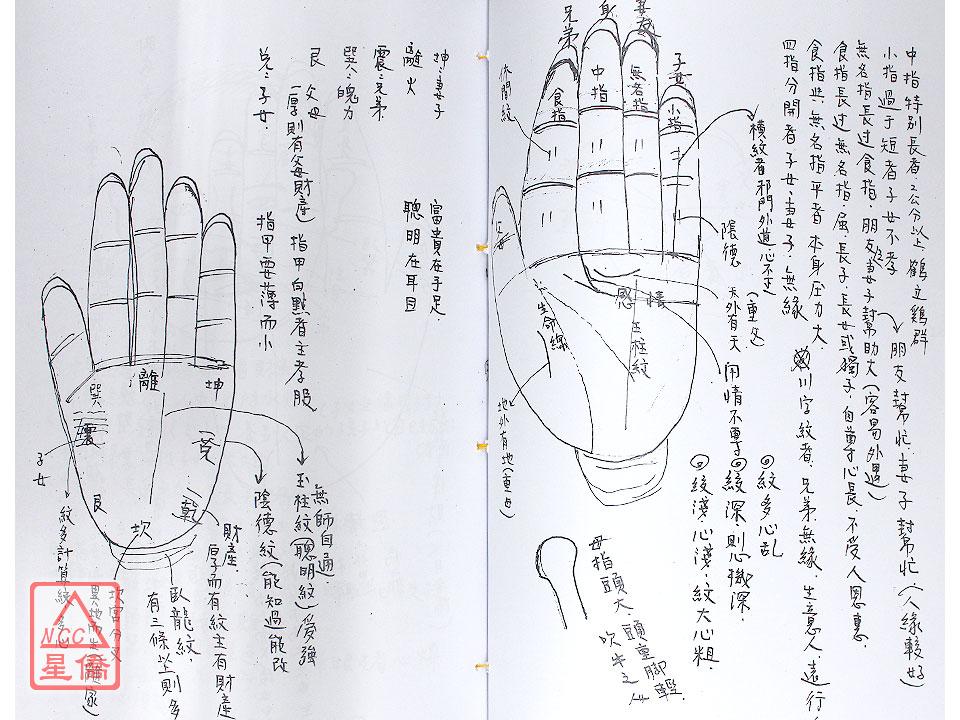 中指特別長者,2公分以上,鶴立鷄群
小指過于短者子女不孝
朋友幫忙.妻子幫忙.(人緣較好)
無名指長过食指,朋友妻子幫助大(容易外遇)
食指長过無名指.屈.長子.長女或獨子.自尊心長.不受人恩惠.
食指與無名指平者 本身圧力大.
川字紋者.兄弟無緣.生意人遠行.
四指分開者子女.妻子.無緣
橫紋者邪門外道心不正
陰德
天外有天(重父)
用情不專
紋多心乱
紋深.則心機深.
紋淺.心淺,紋大心粗
兄弟
身
子女
父母
食指
中指
無名指
小指
休閒紋
感情
生命線
玉柱紋
地外有地(重母)
母指頭大.頭重脚輕.
吹牛之人
坤:妻子
離 火
震:兄弟
巽:魄力
艮 父母
(厚則有父母財產)
兌:子女.
富貴在手足.
聰明在耳目
指甲白點者主孝服
指甲要薄而小
離
坤
巽
震
艮
坎
乾
兌
子女
紋多計算紋.多心
坎宮分叉
異地而生(離家)
臥龍紋.
有三條以上則多
財產.
厚而有紋主有財產
陰德紋(能知過能改
玉柱紋(聰明紋)愛強
無師自通
NCC
星僑